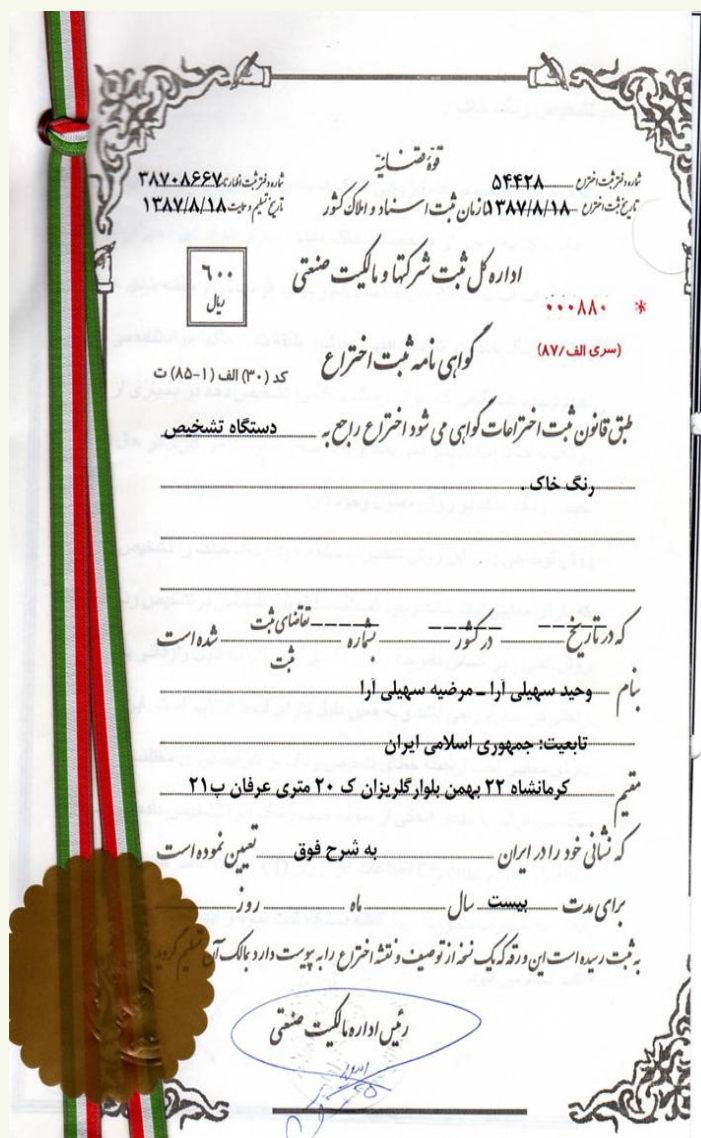 قوه قضائیه
شماره دفتر ثبت اختراع ۵۴۴۲۸
شماره دفتر ثبت اظهارنامه ۳۸۷۰۸۶۶۷
تاریخ ثبت اختراع ۱۳۸۷/۸/۱۸
سازمان ثبت اسناد و املاک کشور
تاریخ تسلیم و حمایت ۱۳۸۷/۸/۱۸
اداره کل ثبت شرکتها و مالکیت صنعتی
۶۰۰
ریال
* ۰۰۰۸۸۰
(سری الف/۸۷)
گواهی نامه ثبت اختراع
کد (۳۰) الف (۱-۸۵) ت
طبق قانون ثبت اختراعات گواهی می شود اختراع راجع به دستگاه تشخیص
رنگ خاک .
که در تاریخ ----- در کشور ----- بشماره ----- تقاضای ثبت
ثبت شده است
بنام وحید سهیلی آرا - مرضیه سهیلی آرا
تابعیت: جمهوری اسلامی ایران
مقیم کرمانشاه ۲۲ بهمن بلوار گلریزان ک ۲۰ متری عرفان پ۲۱
که نشانی خود را در ایران به شرح فوق تعیین نموده است
برای مدت بیست سال ماه روز
به ثبت رسیده است این ورقه که یک نسخه از توصیف و نقشه اختراع را به پیوست دارد بمالک آن تسلیم گردید
رئیس اداره مالکیت صنعتی